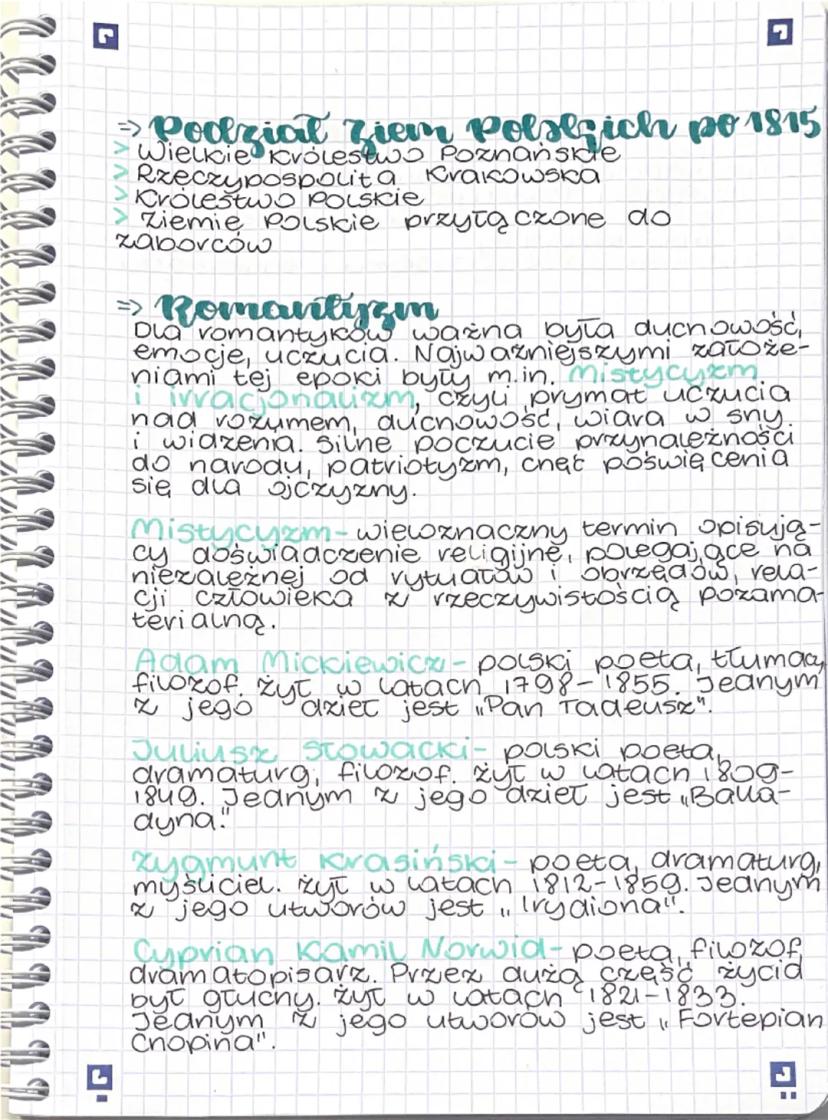 => Podział Ziem Polskich po 1815
> Wielkie Królestwo Poznańskie
> Rzeczypospolita Krakowska
> Królestwo Polskie
> Ziemie Polskie przyłączone do
zaborców
=> Romantyzm
Dla romantyków ważna była duchowość,
emocje, uczucia. Najważniejszymi założe-
niami tej epoki były m.in. Mistycyzm
i irracjonalizm, czyli prymat uczucia
nad rozumem, duchowość, wiara w sny
i widzenia. Silne poczucie przynależności
do narodu, patriotyzm, chęć poświęcenia
się dla ojczyzny.
Mistycyzm - wieloznaczny termin opisują-
cy doświadczenie religijne, polegające na
niezależnej od rytuałów i obrzędów, rela-
cji człowieka z rzeczywistością pozama-
terialną.
Adam Mickiewicz - polski poeta, tłumacz,
filozof. żył w latach 1798-1855. Jednym
z jego dzieł jest „Pan Tadeusz".
Juliusz Słowacki - polski poeta,
dramaturg, filozof. żył w latach 1809-
1849. Jednym z jego dzieł jest „Balla-
dyna."
Zygmunt Krasiński - poeta, dramaturg,
myśliciel. żył w latach 1812-1859. Jednym
z jego utworów jest „Irydiona".
Cyprian Kamil Norwid - poeta, filozof,
dramatopisarz. Przez dużą część życia
był głuchy. żył w latach 1821-1833.
Jednym z jego utworów jest „Fortepian
Chopina".